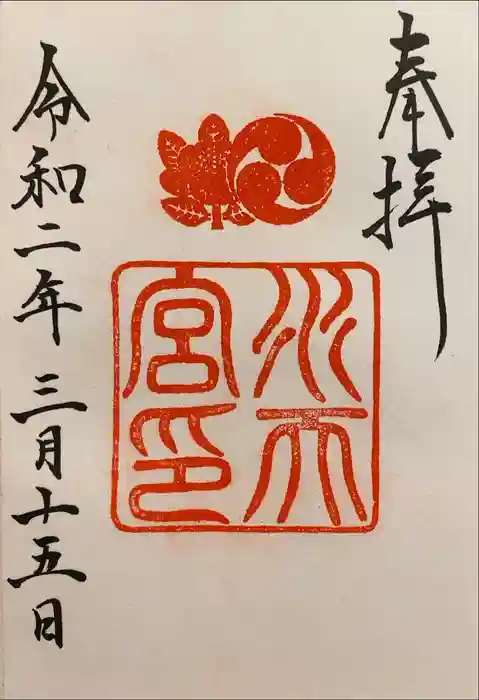 奉拝
水天
宮印
令和二年三月十五日